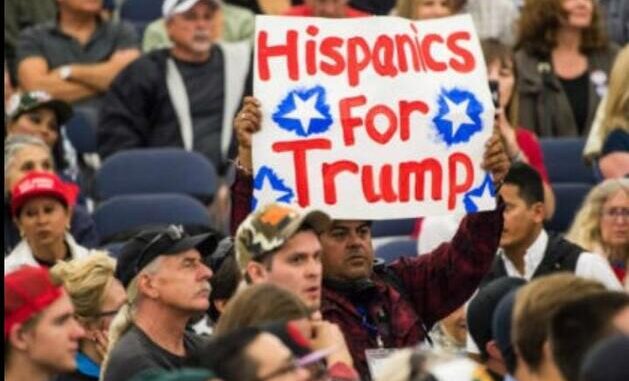 Hispanics
For
Trump